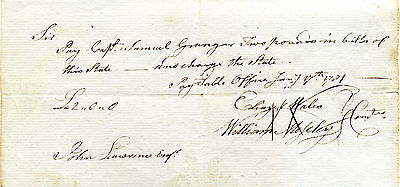 Sir
Pay Capt. Samuel Granger Two pounds in bills of
this State — And charge the State.
Pay Table Office Jany 17th 1781
£2..0..0
William Moseley } Comtee
John Lawrence Esqr.